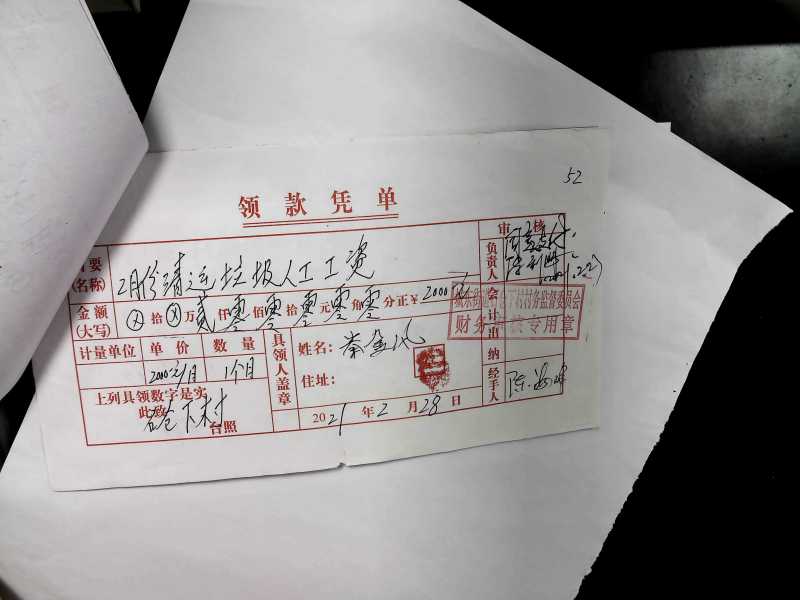 52
领款凭单
摘要
(名称)
2月份清运垃圾人工工资
审核
负责人
金额
(大写)
ⓧ拾ⓧ万贰仟零佰零拾零元零角零分正¥2000元
会计
村务监督委员会
财务审核专用章
计量单位 单价 数量
2000元/月 1个月
具领人盖章
姓名:秦金凤
住址:
出纳
上列具领数字是实
此致
下村
台照
2021年2月28日
经手人
陈